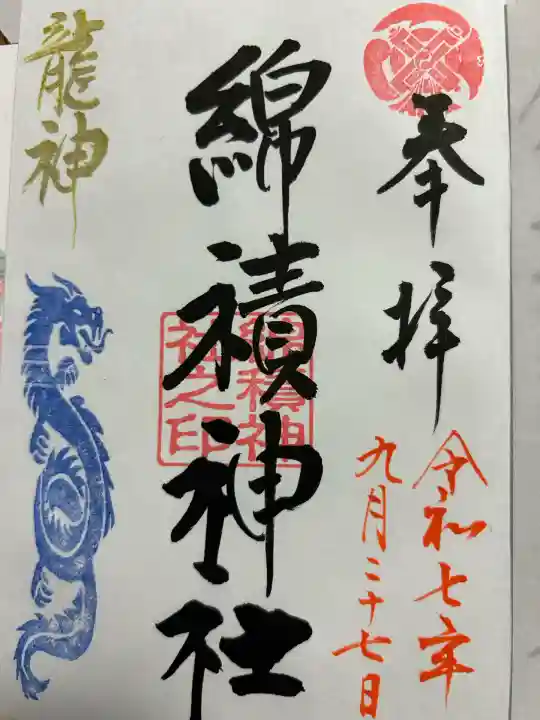 奉拝
令和七年
九月二十七日
綿積神社
綿積神
社之印
龍神